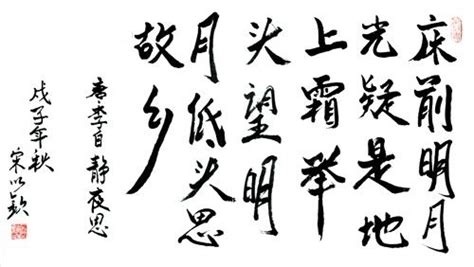 床前明月
光疑是地
上霜举
头望明
月低头思
故乡
唐李白静夜思
戊子年秋
宋以钦